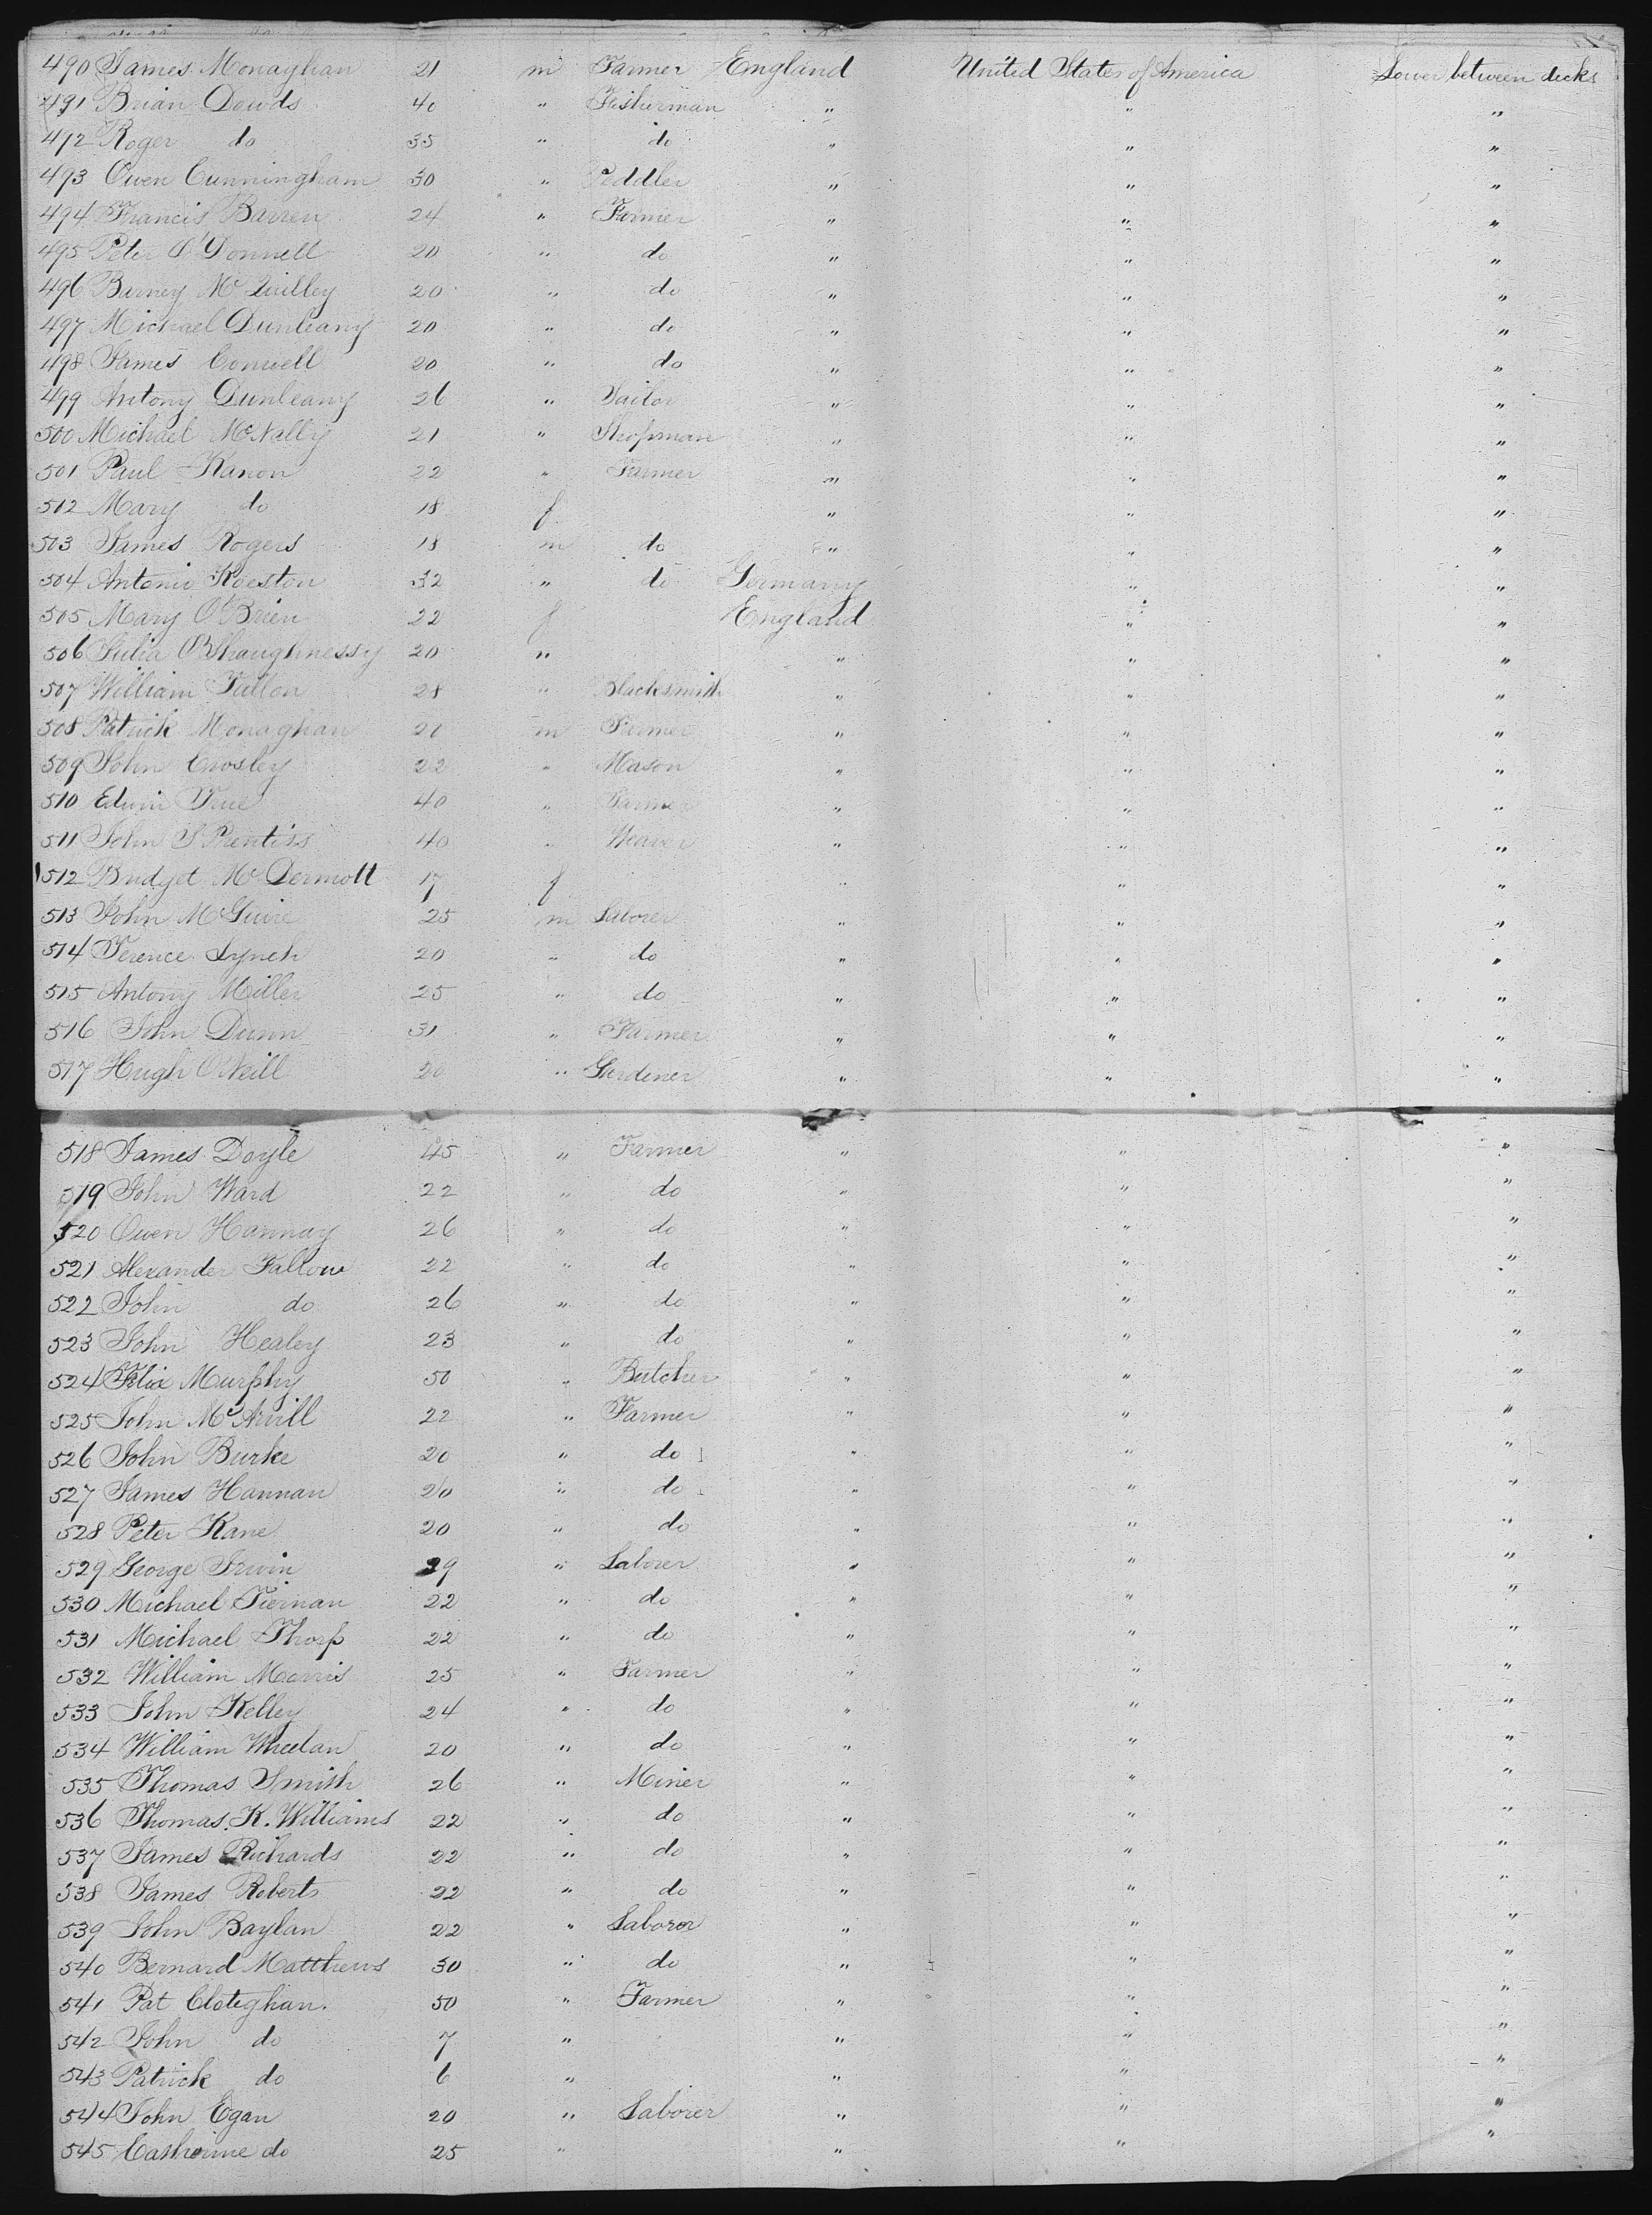 490 James Monaghan 21 m Farmer England United States of America Lower between decks
491 Brian Dowds 40 " Fisherman " " "
492 Roger do 35 " do " " "
493 Owen Cunningham 30 " Peddler " " "
494 Francis Barren 24 " Farmer " " "
495 Peter O'Donnell 20 " do " " "
496 Barney McQuilley 20 " do " " "
497 Michael Dunleany 20 " do " " "
498 James Conwell 20 " do " " "
499 Antony Dunleany 26 " Tailor " " "
500 Michael McNally 21 " Shopman " " "
501 Paul Kanon 22 " Farmer " " "
502 Mary do 18 f " " "
503 James Rogers 18 m do " " "
504 Antonio Koeston 32 " do Germany " "
505 Mary O'Brien 22 f England " "
506 Julia O'Shaughnessy 20 " " " "
507 William Fallon 28 " Blacksmith " " "
508 Patrick Monaghan 20 m Farmer " " "
509 John Crosley 22 " Mason " " "
510 Edwin True 40 " Farmer " " "
511 John S Prentiss 40 " Weaver " " "
512 Bridget McDermott 17 f " " "
513 John McGuire 25 m Laborer " " "
514 Terence Lynch 20 " do " " "
515 Antony Miller 25 " do " " "
516 John Dunn 31 " Farmer " " "
517 Hugh O'Neill 20 " Gardener " " "
518 James Doyle 45 " Farmer " " "
519 John Ward 22 " do " " "
520 Owen Hannay 26 " do " " "
521 Alexander Fallow 22 " do " " "
522 John do 26 " do " " "
523 John Healey 23 " do " " "
524 Felix Murphy 50 " Butcher " " "
525 John McArvill 22 " Farmer " " "
526 John Burke 20 " do " " "
527 James Hannan 20 " do " " "
528 Peter Kane 20 " do " " "
529 George Irwin 29 " Laborer " " "
530 Michael Tiernan 22 " do " " "
531 Michael Thorp 22 " do " " "
532 William Morris 25 " Farmer " " "
533 John Kelley 24 " do " " "
534 William Wheelan 20 " do " " "
535 Thomas Smith 26 " Miner " " "
536 Thomas. K. Williams 22 " do " " "
537 James Richards 22 " do " " "
538 James Roberts 22 " do " " "
539 John Baylan 22 " Laborer " " "
540 Bernard Matthews 30 " do " " "
541 Pat Cloteghan. 50 " Farmer " " "
542 John do 7 " " " "
543 Patrick do 6 " " " "
544 John Egan 20 " Laborer " " "
545 Catherine do 25 " " " "